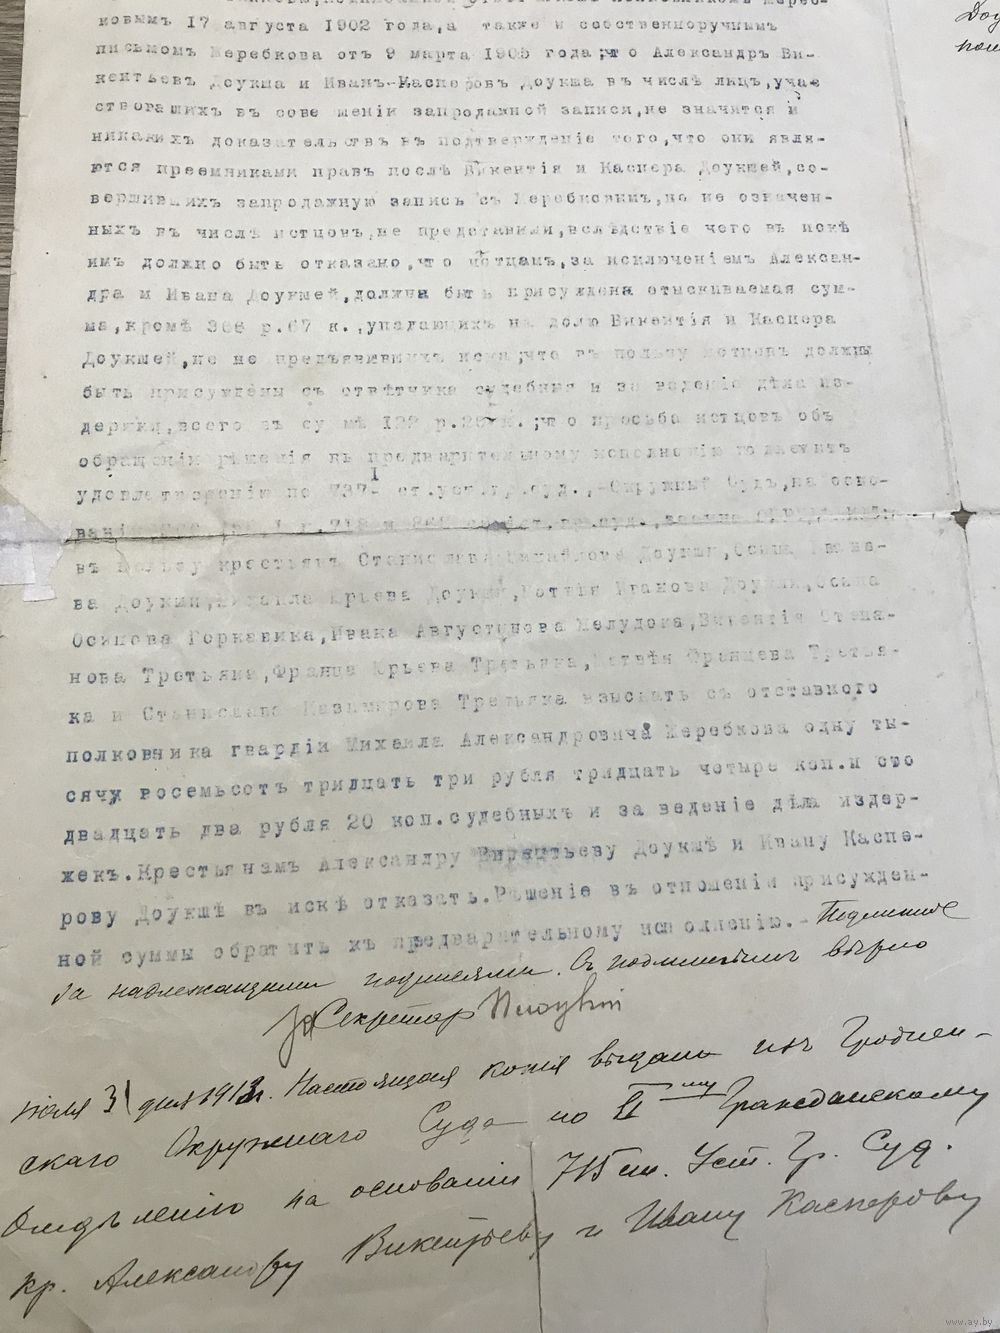 новымъ 17 августа 1902 года,а также и собственноручнымъ
письмомъ Жеребкова отъ 9 марта 1905 года;что Александръ Ви-
кентьевъ Доукша и Иванъ-Касперовъ Доукша въ числѣ лицъ,учав
ствовашихъ въ сове шеніи запродажной записи,не значится и
никакихъ доказательствъ въ подтвержденіе того,что они явля-
ются преемниками правъ послѣ Викентія и Каспера Доукшей,со-
вершившихъ запродажную запись съ Жеребковымъ,но не означен-
ныхъ въ числѣ истцовъ,не представили,вслѣдствіе чего въ искѣ
имъ должно быть отказано,что истцамъ,за исключеніемъ Алексан-
дра и Ивана Доукшей,должна быть присуждена отыскиваемая сум-
ма,кромѣ 366 р.67 к.,упадающихъ на долю Викентія и Каспера
Доукшей,но не предъявившихъ иска;что въ пользу истцовъ должны
быть присуждены съ отвѣтчика судебныя и за веденіе дѣла из-
держки,всего въ суммѣ 122 р. ;что просьба истцовъ объ
обращеніи рѣшенія къ предварительному исполненію подлежитъ
удовлетворенію по 737 ст.уст.гр.суд.,-Окружный Судъ,на осно-
ваніи
въ пользу крестьянъ Станислава Михайлова Доукши,Осипа Ивано-
ва Доукши,Михаила Юрьева Доукши,Матвѣя Иванова Доукши,Осипа
Осипова Горкавика,Ивана Августинова Желудока,Викентія Степа-
нова Третьяка,Франца Юрьева Третьяка,Матвѣя Францева Третья-
ка и Станислава Казимирова Третьяка взыскать съ отставного
полковника гвардіи Михаила Александровича Жеребкова одну ты-
сячу восемьсотъ тридцать три рубля тридцать четыре коп.и сто
двадцать два рубля 20 коп.судебныхъ и за веденіе дѣла издер-
жекъ.Крестьянамъ Александру Викентьеву Доукшѣ и Ивану Каспе-
рову Доукшѣ въ искѣ отказать.Рѣшеніе въ отношеніи присужден-
ной суммы обратить къ предварительному исполненію.- Подлинное
за надлежащими подписями. Съ подлиннымъ вѣрно
За Секретарь
Іюля 31 дня 1913 г. Настоящая копія выдана изъ Гроднен-
скаго Окружнаго Суда по II му Гражданскому
Отдѣленію на основаніи 715 ст. Уст. Гр. Суд.
кр. Александру Викентьеву и Ивану Касперову
www.ay.by